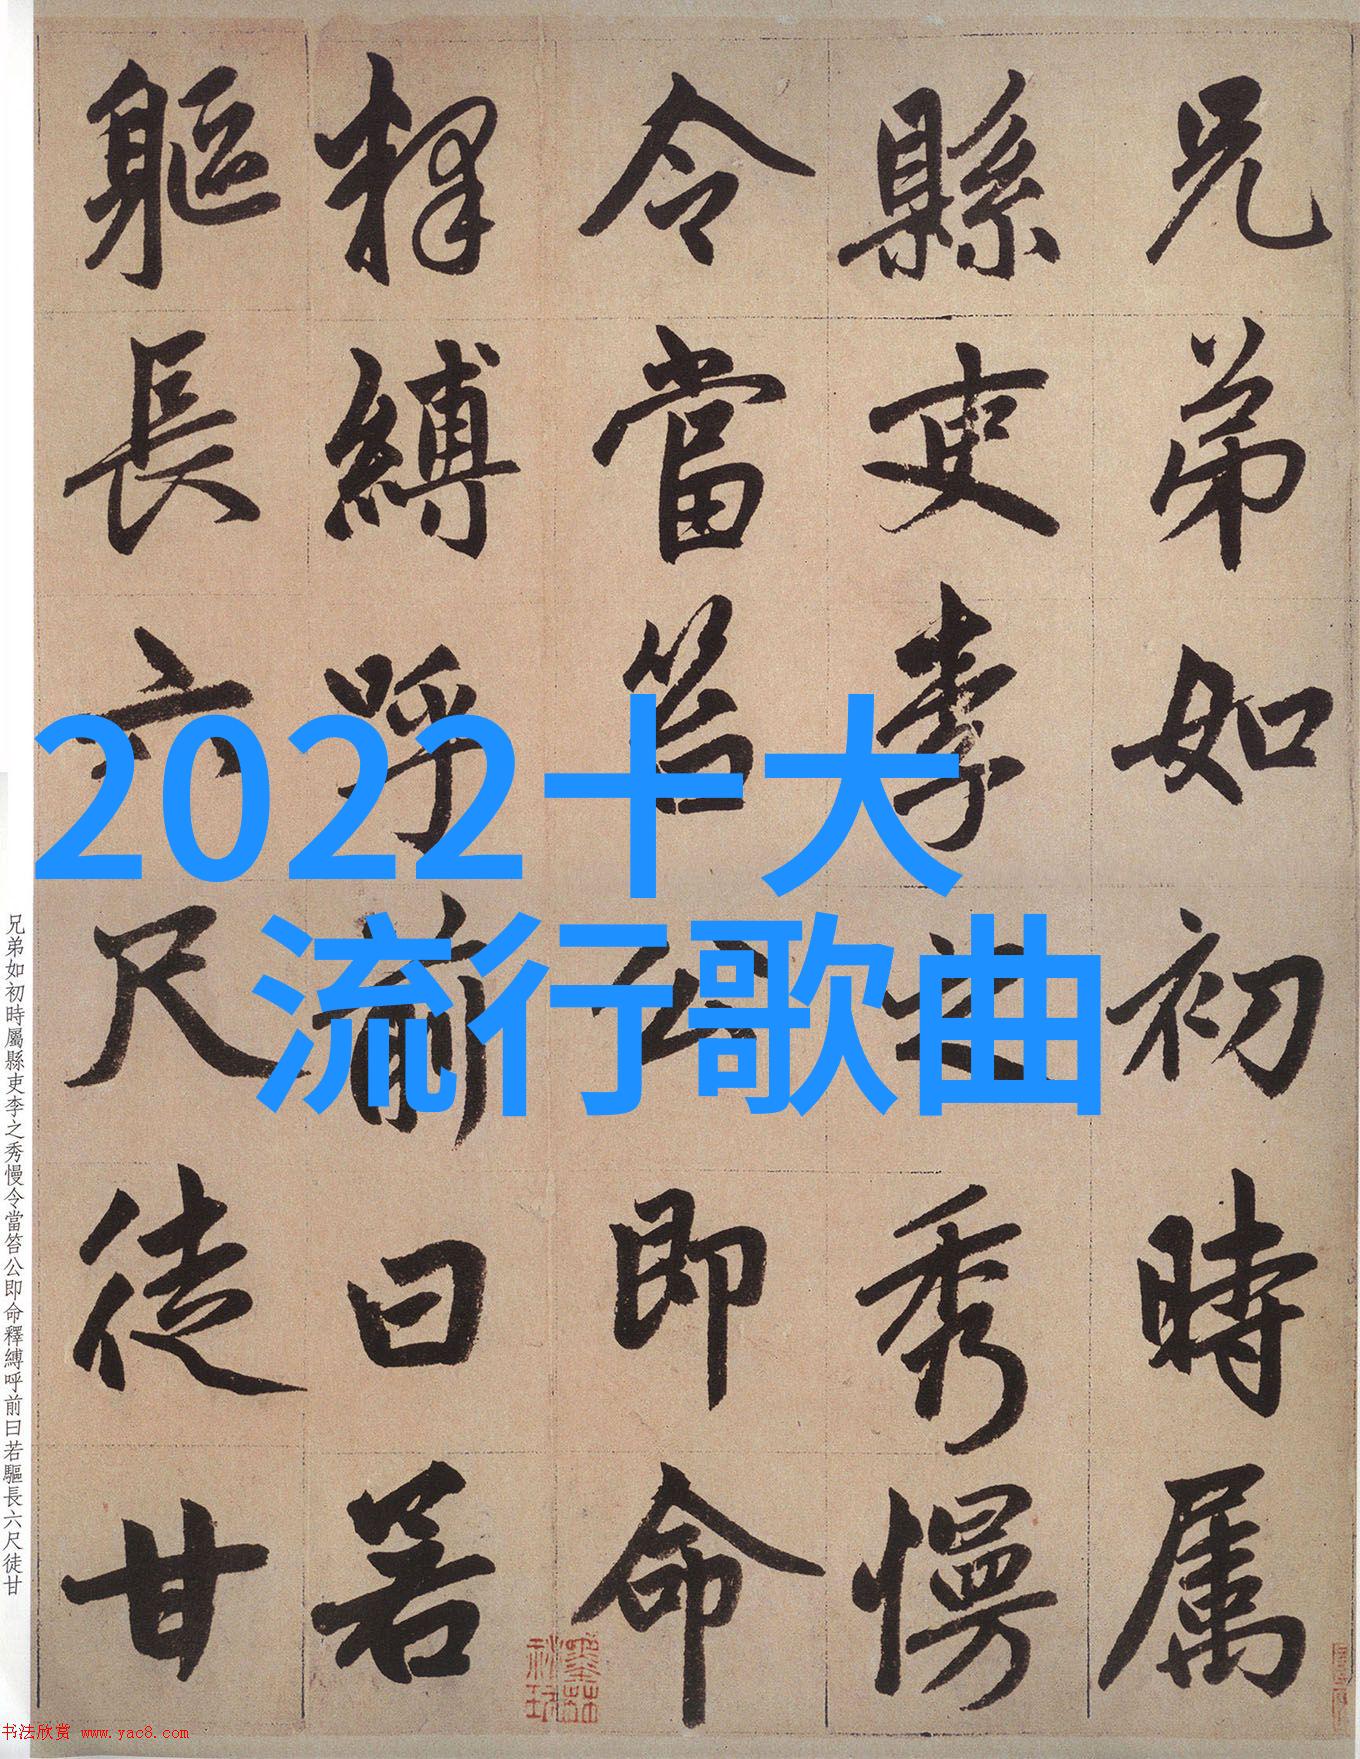 兄弟如初時属
縣吏李之秀慢
令當笞公即命
釋縛呼前曰若
軀長六尺徒甘
2022十大
流行歌曲
兄弟如初時屬縣吏李之秀慢令當笞公即命釋縛呼前曰若驅長六尺徒甘
书法欣赏 www.yac8.com